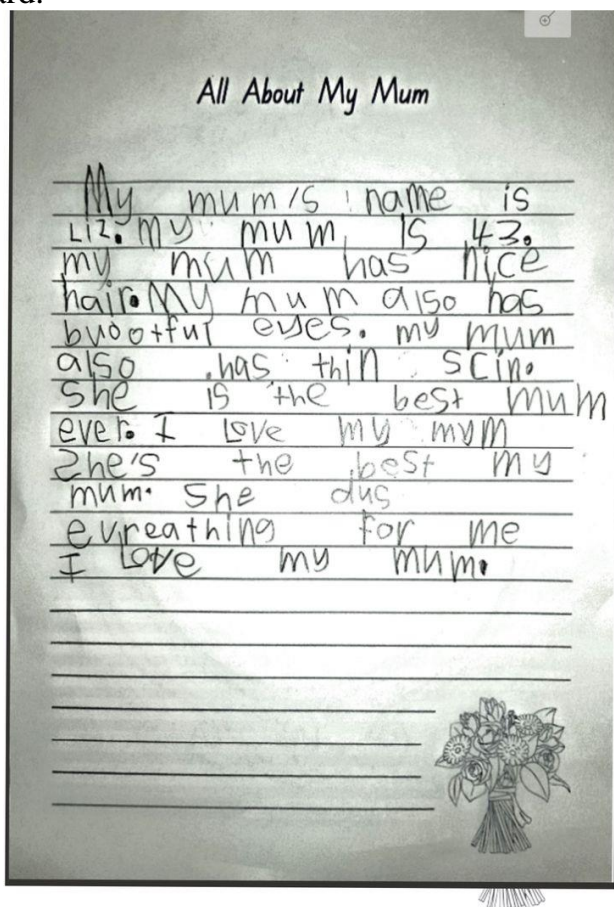 ard.
All About My Mum
My mum's name is
Liz. my mum is 43.
my mum has nice
hair. My mum also has
buootful eyes. my mum
also has thin scin.
she is the best mum
ever. I Love my mum
She's the best my
mum. She dus
evreathing for me
I Love my mum.